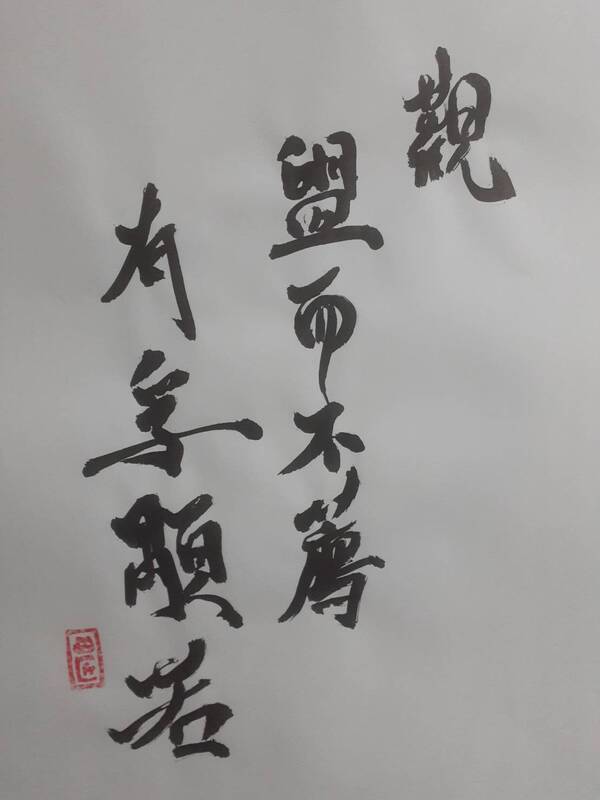 觀
盥而不薦
有孚顒若